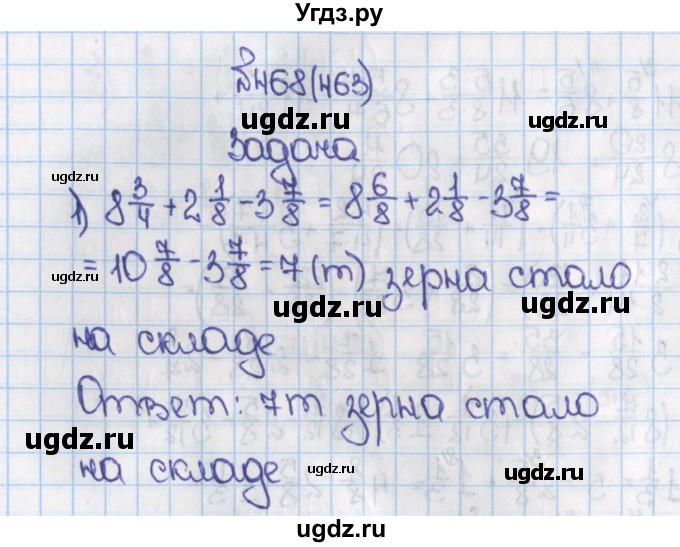 Угдз.ру
№468(463)
ugdz.ru
Задача
ugdz.ru
1) 8 3/4 + 2 1/8 - 3 7/8 = 8 6/8 + 2 1/8 - 3 7/8 =
ugdz.ru
ugdz.ru
= 10 7/8 - 3 7/8 = 7 (т) зерна стало
ugdz.ru
ugdz.ru
ugdz.ru
на складе
Ответ: 7т зерна стало
ugdz.ru
на складе
ugdz.ru
ugdz.ru
ugdz.ru